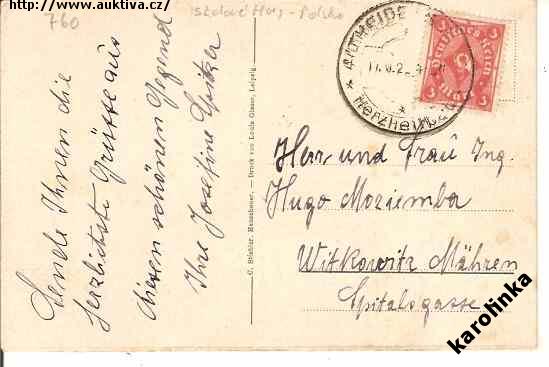 http://www.auktiva.cz/
760
Stolové Hory - Polsko
Sende Ihnen die
herzlichste Grüsse aus
diesen schönen Gegend
Ihre Josefine Spitzer
C. Stiebler, Druck von Louis Glaser, Leipzig
ALTHEIDE
* Herzheilbad *
Deutsches Reich
3
3
Herr und Frau Ing.
Hugo Moziemba
Witkowitz Mähren
Spitalsgasse
karolinka